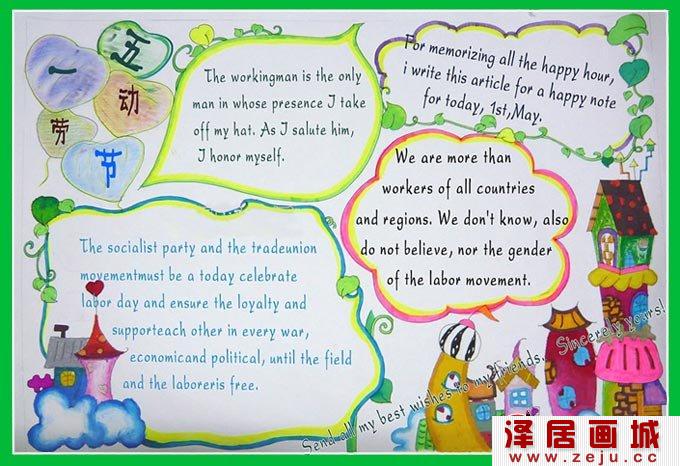 五
一
动
劳
节
The workingman is the only
man in whose presence I take
off my hat. As I salute him,
I honor myself.
For memorizing all the happy hour,
i write this article for a happy note
for today, 1st,May.
We are more than
workers of all countries
and regions. We don't know, also
do not believe, nor the gender
of the labor movement.
The socialist party and the tradeunion
movementmust be a today celebrate
labor day and ensure the loyalty and
supporteach other in every war,
economicand political, until the field
and the laboreris free.
Send all my best wishes to my friends. Sincerely yours!
泽居画城
www.zeju.cc